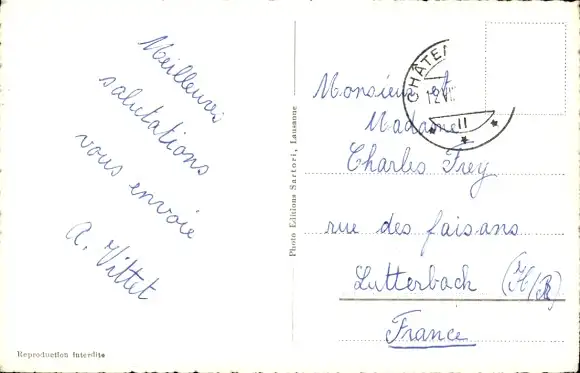 Meilleures
salutations
vous envoie
A. Vittet
Reproduction interdite
Photo Editions Sartori, Lausanne
CHÂTE
12.VI
11
Monsieur et
Madame
Charles Frey
rue des faisans
Lutterbach (H/R)
France